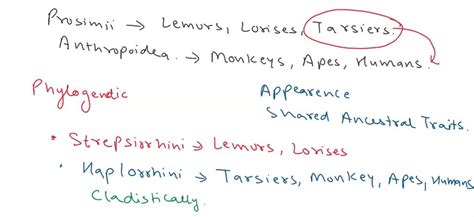 Prosimii → Lemurs, Lorises, Tarsiers.
Anthropoidea. → Monkeys, Apes, Humans.
Phylogendic
Appearence
Shared Ancestral Traits.
• Strepsirrhini → Lemurs, Lorises
• Haplorrhini → Tarsiers, Monkey, Apes, Humans
Cladistically.